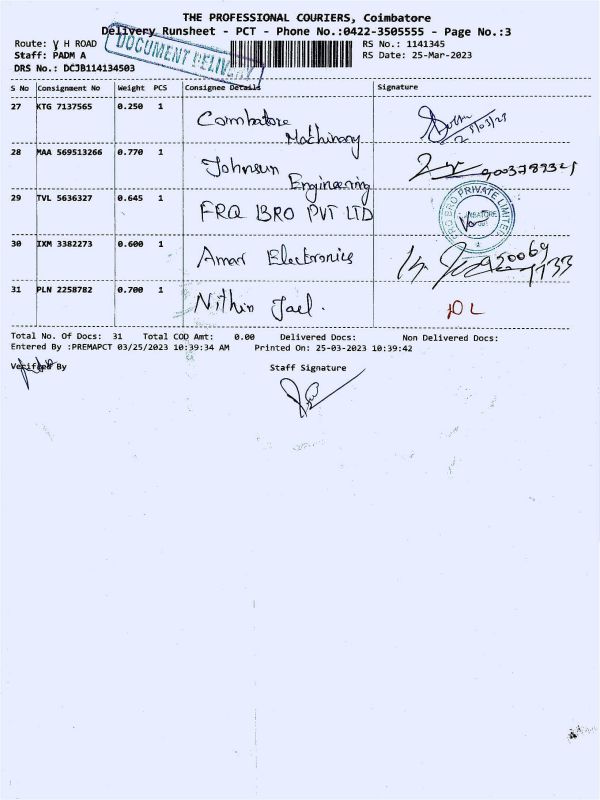 THE PROFESSIONAL COURIERS, Coimbatore
Delivery Runsheet - PCT - Phone No.:0422-3505555 - Page No.:3
Route: V H ROAD
RS No.: 1141345
Staff: PADM A
RS Date: 25-Mar-2023
DRS No.: DCJB114134503
DOCUMENT DELIVERY
S No Consignment No Weight PCS Consignee Details Signature
27 KTG 7137565 0.250 1 Coimbatore Machinery
28 MAA 569513266 0.770 1 Johnsun Engineering
29 TVL 5636327 0.645 1 FRQ BRO PVT LTD
BRO PRIVATE LIMITED
30 IXM 3382273 0.600 1 Amar Electronics
31 PLN 2258782 0.700 1 Nithin Jael. DL
Total No. Of Docs: 31 Total COD Amt: 0.00 Delivered Docs: Non Delivered Docs:
Entered By :PREMAPCT 03/25/2023 10:39:34 AM Printed On: 25-03-2023 10:39:42
Verified By Staff Signature